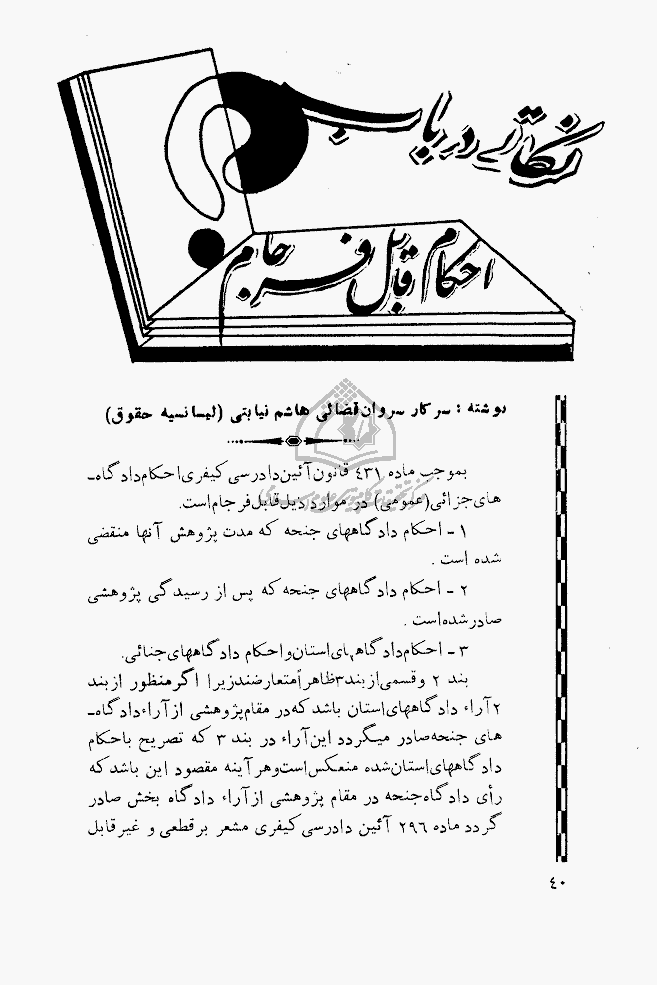 نکاتی در باب
احکام قابل فرجام
نوشته : سرکار سروان قضائی هاشم نیابتی (لیسانسیه حقوق)
بموجب ماده ٤٣١ قانون آئین دادرسی کیفری احکام دادگاه‌ـ
های جزائی (عمومی) در موارد ذیل قابل فرجام است.
١ ـ احکام دادگاههای جنحه که مدت پژوهش آنها منقضی
شده است .
٢ ـ احکام دادگاههای جنحه که پس از رسیدگی پژوهشی
صادر شده است .
٣ ـ احکام دادگاههای استان و احکام دادگاههای جنائی.
بند ٢ و قسمی از بند ٣ ظاهراً متعارضند زیرا اگر منظور از بند
٢ آراء دادگاههای استان باشد که در مقام پژوهشی از آراء دادگاه‌ـ
های جنحه صادر میگردد این آراء در بند ٣ که تصریح باحکام
دادگاههای استان شده منعکس است و هر آینه مقصود این باشد که
رأی دادگاه جنحه در مقام پژوهشی از آراء دادگاه بخش صادر
گردد ماده ٢٩٦ آئین دادرسی کیفری مشعر بر قطعی و غیر قابل
٤٠